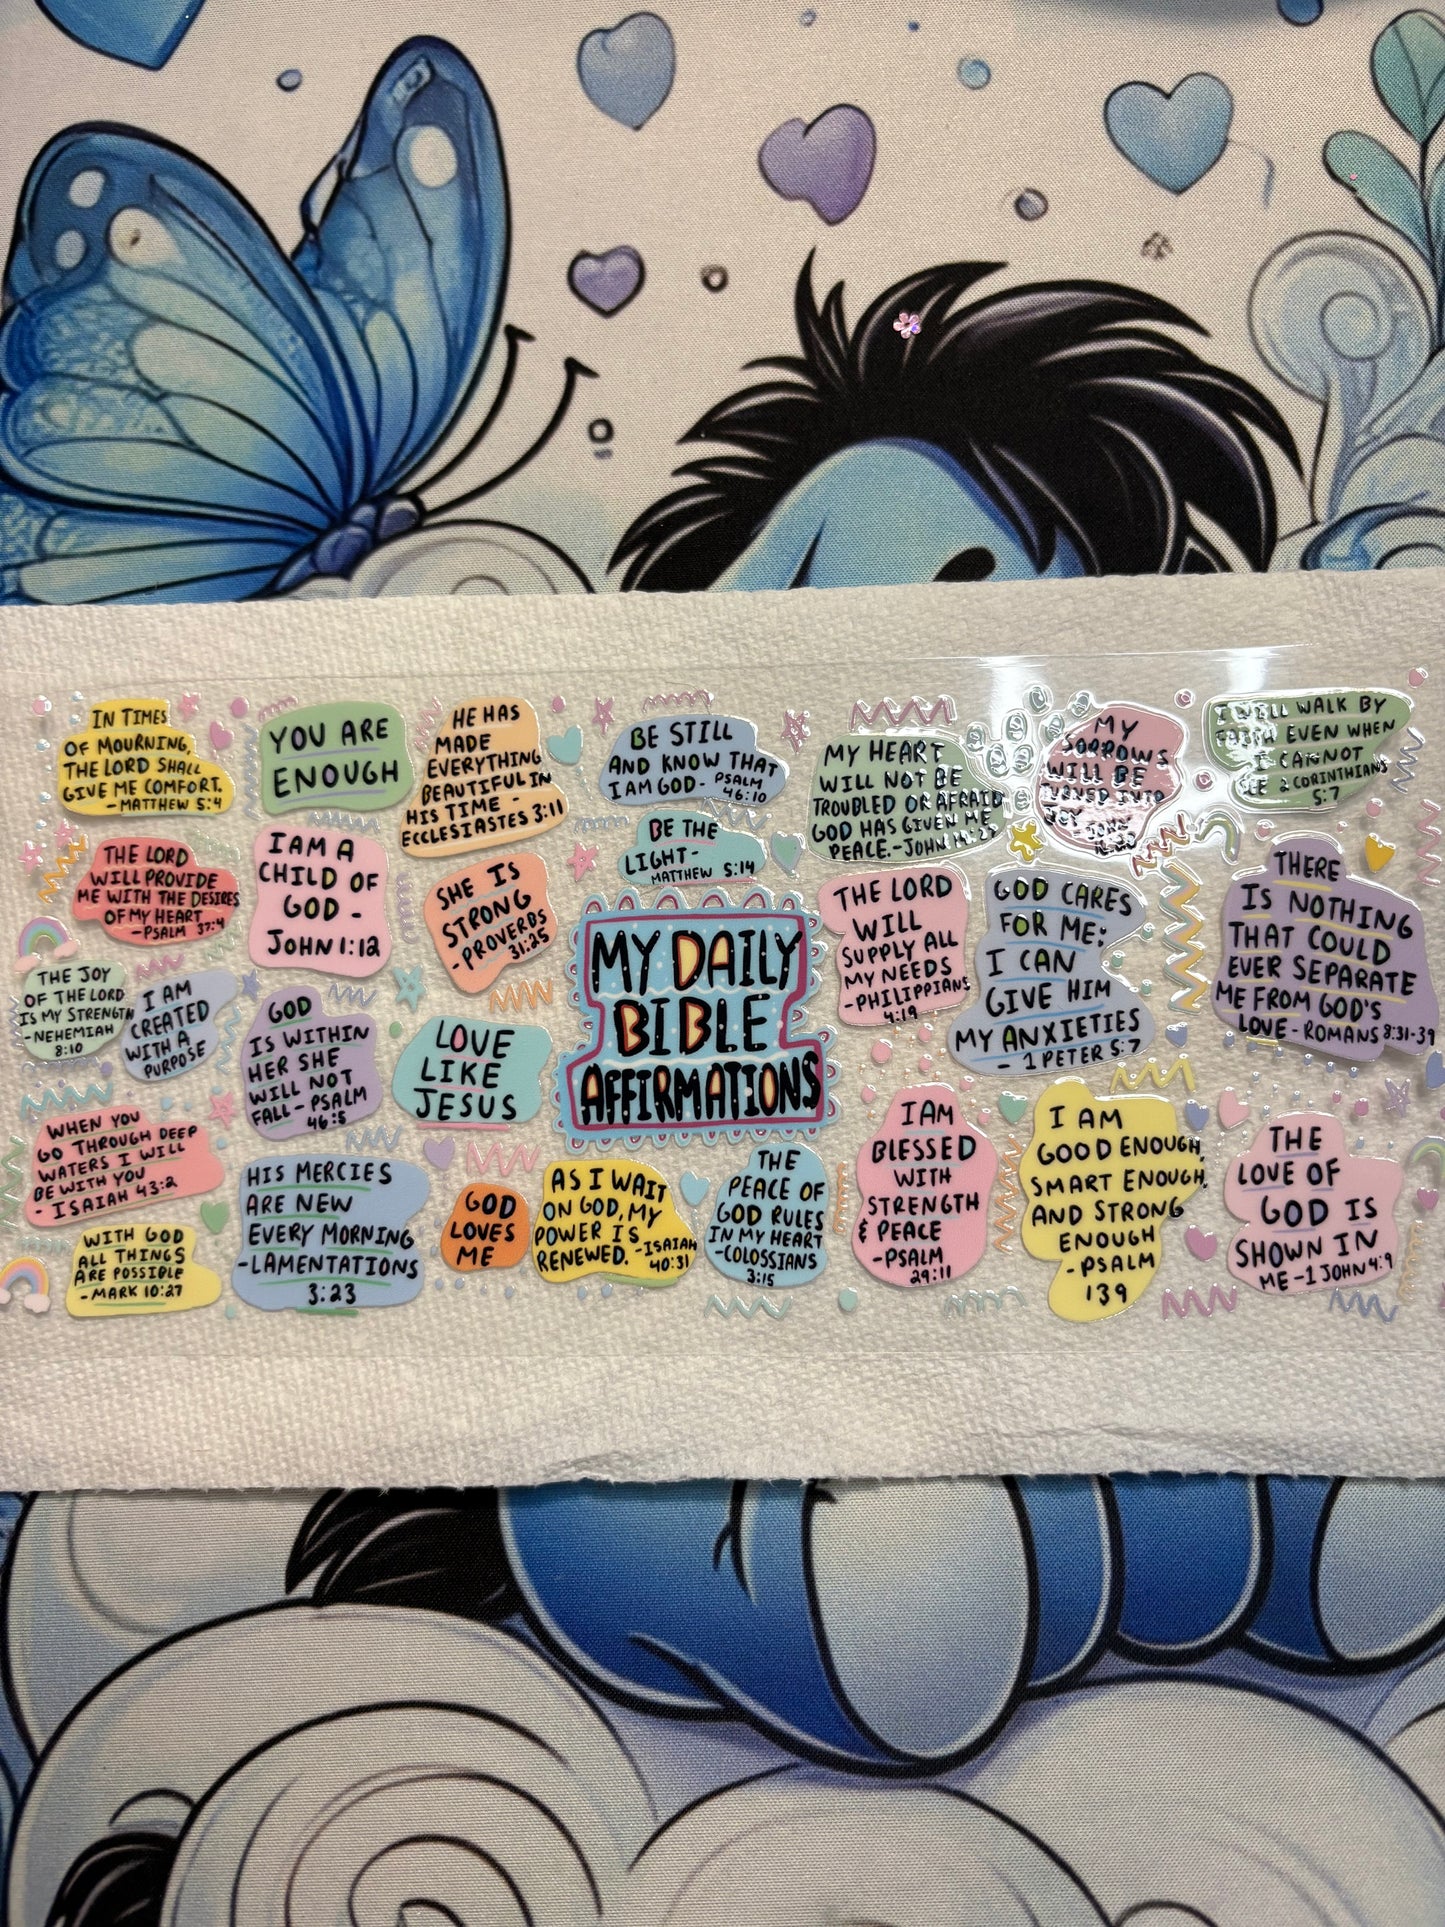 IN TIMES
OF MOURNING,
THE LORD SHALL
GIVE ME COMFORT.
-MATTHEW 5:4
YOU ARE
ENOUGH
HE HAS
MADE
EVERYTHING
BEAUTIFUL IN
HIS TIME -
ECCLESIASTES 3:11
BE STILL
AND KNOW THAT
I AM GOD- PSALM
46:10
MY HEART
WILL NOT BE
TROUBLED OR AFRAID
GOD HAS GIVEN ME
PEACE.-JOHN
MY
SORROWS
WILL BE
TURNED INTO
JOY - JOHN
I WILL WALK BY
FAITH EVEN WHEN
I CANNOT
SEE 2 CORINTHIANS
5:7
THE LORD
WILL PROVIDE
ME WITH THE DESIRES
OF MY HEART
-PSALM 37:4
I AM A
CHILD OF
GOD -
JOHN 1:12
SHE IS
STRONG
-PROVERBS
31:25
BE THE
LIGHT-
MATTHEW 5:14
THE LORD
WILL
SUPPLY ALL
MY NEEDS
-PHILIPPIANS
4:19
GOD CARES
FOR ME;
I CAN
GIVE HIM
MY ANXIETIES
- 1 PETER 5:7
THERE
IS NOTHING
THAT COULD
EVER SEPARATE
ME FROM GOD'S
LOVE - ROMANS 8:31-39
THE JOY
OF THE LORD
IS MY STRENGTH
-NEHEMIAH
8:10
I AM
CREATED
WITH A
PURPOSE
GOD
IS WITHIN
HER SHE
WILL NOT
FALL - PSALM
46:5
LOVE
LIKE
JESUS
MY DAILY
BIBLE
AFFIRMATIONS
WHEN YOU
GO THROUGH DEEP
WATERS I WILL
BE WITH YOU
- ISAIAH 43:2
WITH GOD
ALL THINGS
ARE POSSIBLE
-MARK 10:27
HIS MERCIES
ARE NEW
EVERY MORNING
-LAMENTATIONS
3:23
GOD
LOVES
ME
AS I WAIT
ON GOD, MY
POWER IS
RENEWED. -ISAIAH
40:31
THE
PEACE OF
GOD RULES
IN MY HEART
-COLOSSIANS
3:15
I AM
BLESSED
WITH
STRENGTH
& PEACE
-PSALM
29:11
I AM
GOOD ENOUGH,
SMART ENOUGH,
AND STRONG
ENOUGH
-PSALM
139
THE
LOVE OF
GOD IS
SHOWN IN
ME -1 JOHN 4:9